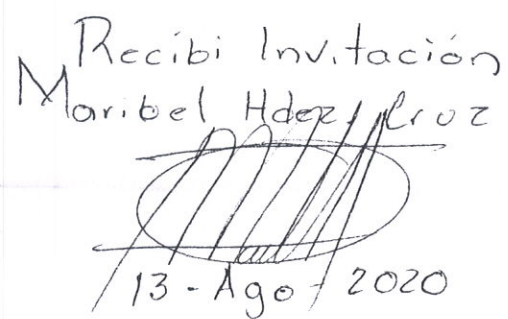 Recibi Invitación
Maribel Hdez. Cruz
13-Ago-2020